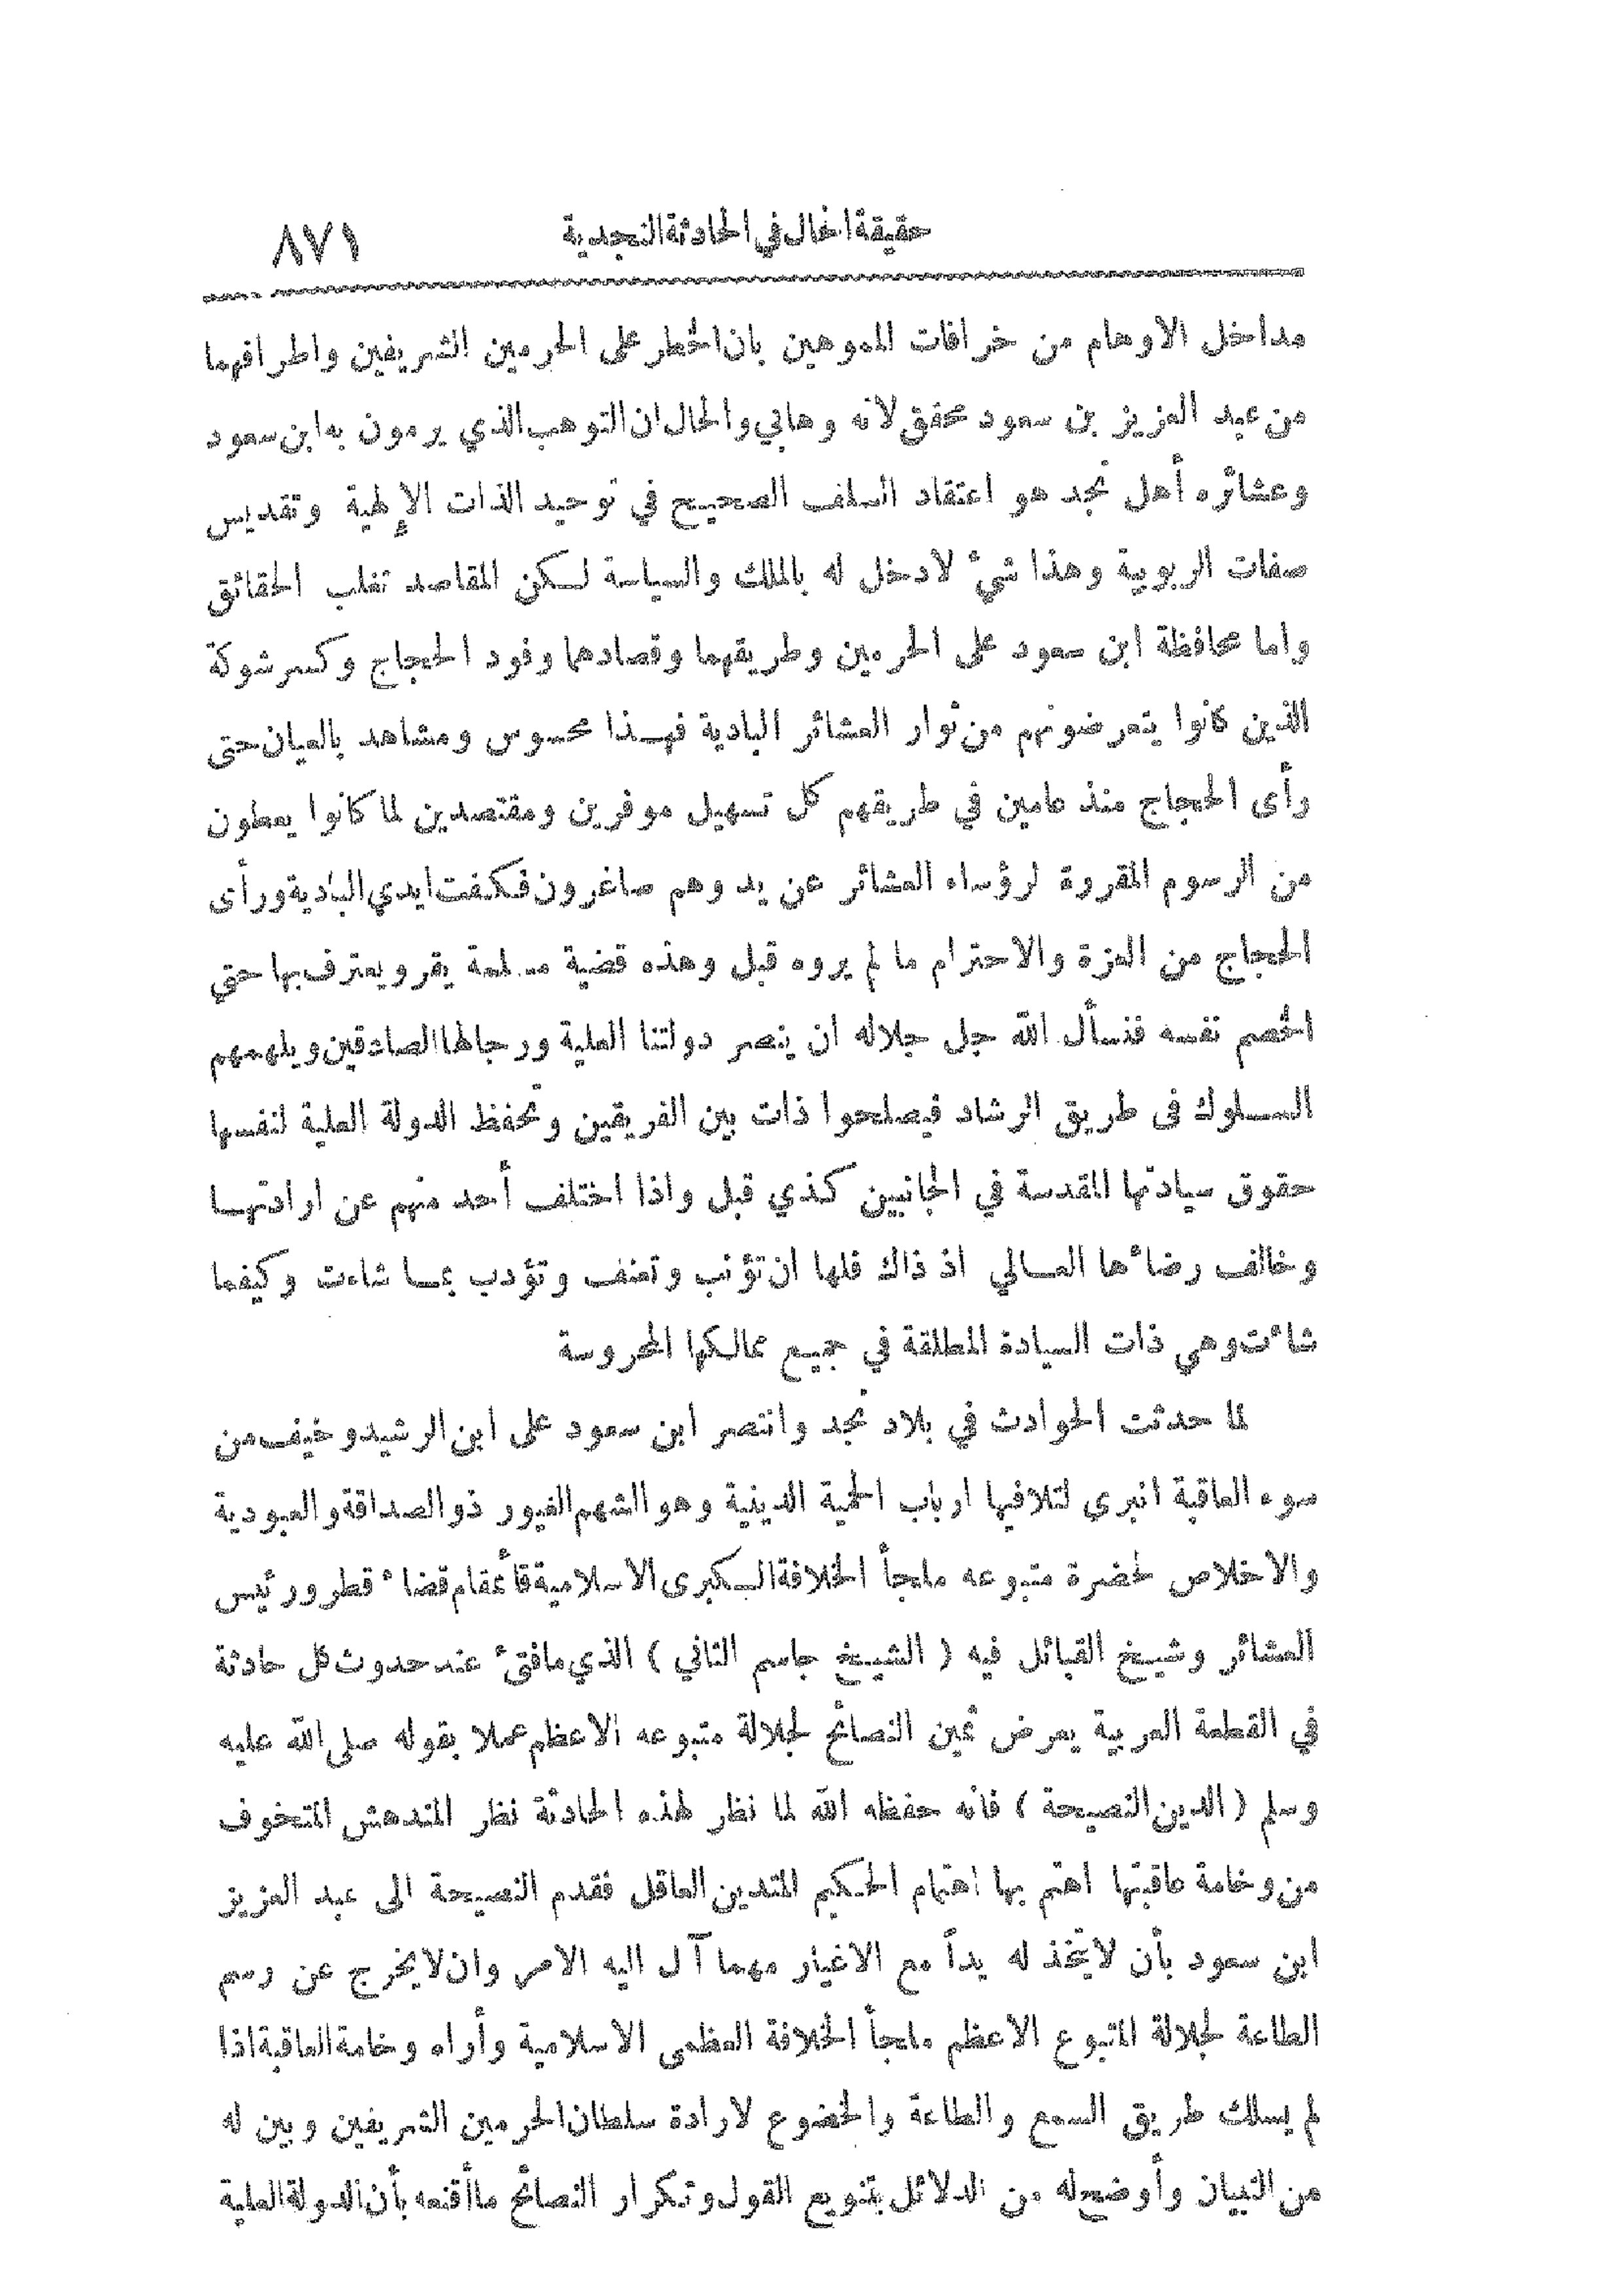 حقيقة الحال في الحادثة النجدية ٨٧١
مداخل الاوهام من خرافات المموهين بان الخطر على الحرمين الشريفين واطرافهما
من عبد العزيز بن سعود محقق لانه وهابي والحال ان التوهب الذي يرمون به ابن سعود
وعشائره أهل نجد هو اعتقاد السلف الصحيح في توحيد الذات الإلهية وتقديس
صفات الربوبية وهذا شيء لا دخل له بالملك والسياسة لكن المقاصد تغلب الحقائق
واما محافظة ابن سعود على الحرمين وطريقهما وقصادهما وفود الحجاج وكسر شوكة
الذين كانوا يتعرضونهم من ثوار العشائر البادية فهذا محسوس ومشاهد بالعيان حتى
رأى الحجاج منذ عامين في طريقهم كل تسهيل موفرين ومقتصدين لما كانوا يعطون
من الرسوم المقررة لرؤساء العشائر عن يد وهم صاغرون فكفت ايدي البادية ورأى
الحجاج من العزة والاحترام ما لم يروه قبل وهذه قضية مسلمة يقر ويعترف بها حتى
الخصم نفسه فنسأل الله جل جلاله ان ينصر دولتنا العلية ورجالها الصادقين ويلهمهم
السلوك فى طريق الرشاد فيصلحوا ذات بين الفريقين وتحفظ الدولة العلية لنفسها
حقوق سيادتها المقدسة في الجانبين كذي قبل واذا اختلف أحد منهم عن ارادتها
وخالف رضاءها العالي اذ ذاك فلها ان تؤنب وتعنف وتؤدب بما شاءت وكيفما
شاءت وهي ذات السيادة المطلقة في جميع ممالكها المحروسة
لما حدثت الحوادث في بلاد نجد وانتصر ابن سعود على ابن الرشيد وخيف من
سوء العاقبة انبرى لتلافيها ارباب الحمية الدينية وهو الشهم الغيور ذو الصداقة والعبودية
والاخلاص لحضرة متبوعه ملجأ الخلافة الكبرى الاسلامية قائمقام قضاء قطر ورئيس
العشائر وشيخ القبائل فيه ( الشيخ جاسم الثاني ) الذي ما فتئ عند حدوث كل حادثة
في القطعة العربية يعرض ثمين النصائح لجلالة متبوعه الاعظم عملا بقوله صلى الله عليه
وسلم ( الدين النصيحة ) فانه حفظه الله لما نظر لهذه الحادثة نظر المتدهش المتخوف
من وخامة عاقبتها اهتم بها اهتمام الحكيم المتدين العاقل فقدم النصيحة الى عبد العزيز
ابن سعود بأن لا يتخذ له يداً مع الاغيار مهما آل اليه الامر وان لا يخرج عن رسم
الطاعة لجلالة المتبوع الاعظم ملجأ الخلافة العظمى الاسلامية وأراه وخامة العاقبة اذا
لم يسلك طريق السمع والطاعة والخضوع لارادة سلطان الحرمين الشريفين وبين له
من التبيان وأوضح له من الدلائل بتنويع القول وتكرار النصائح ما أقنعه بأن الدولة العلية